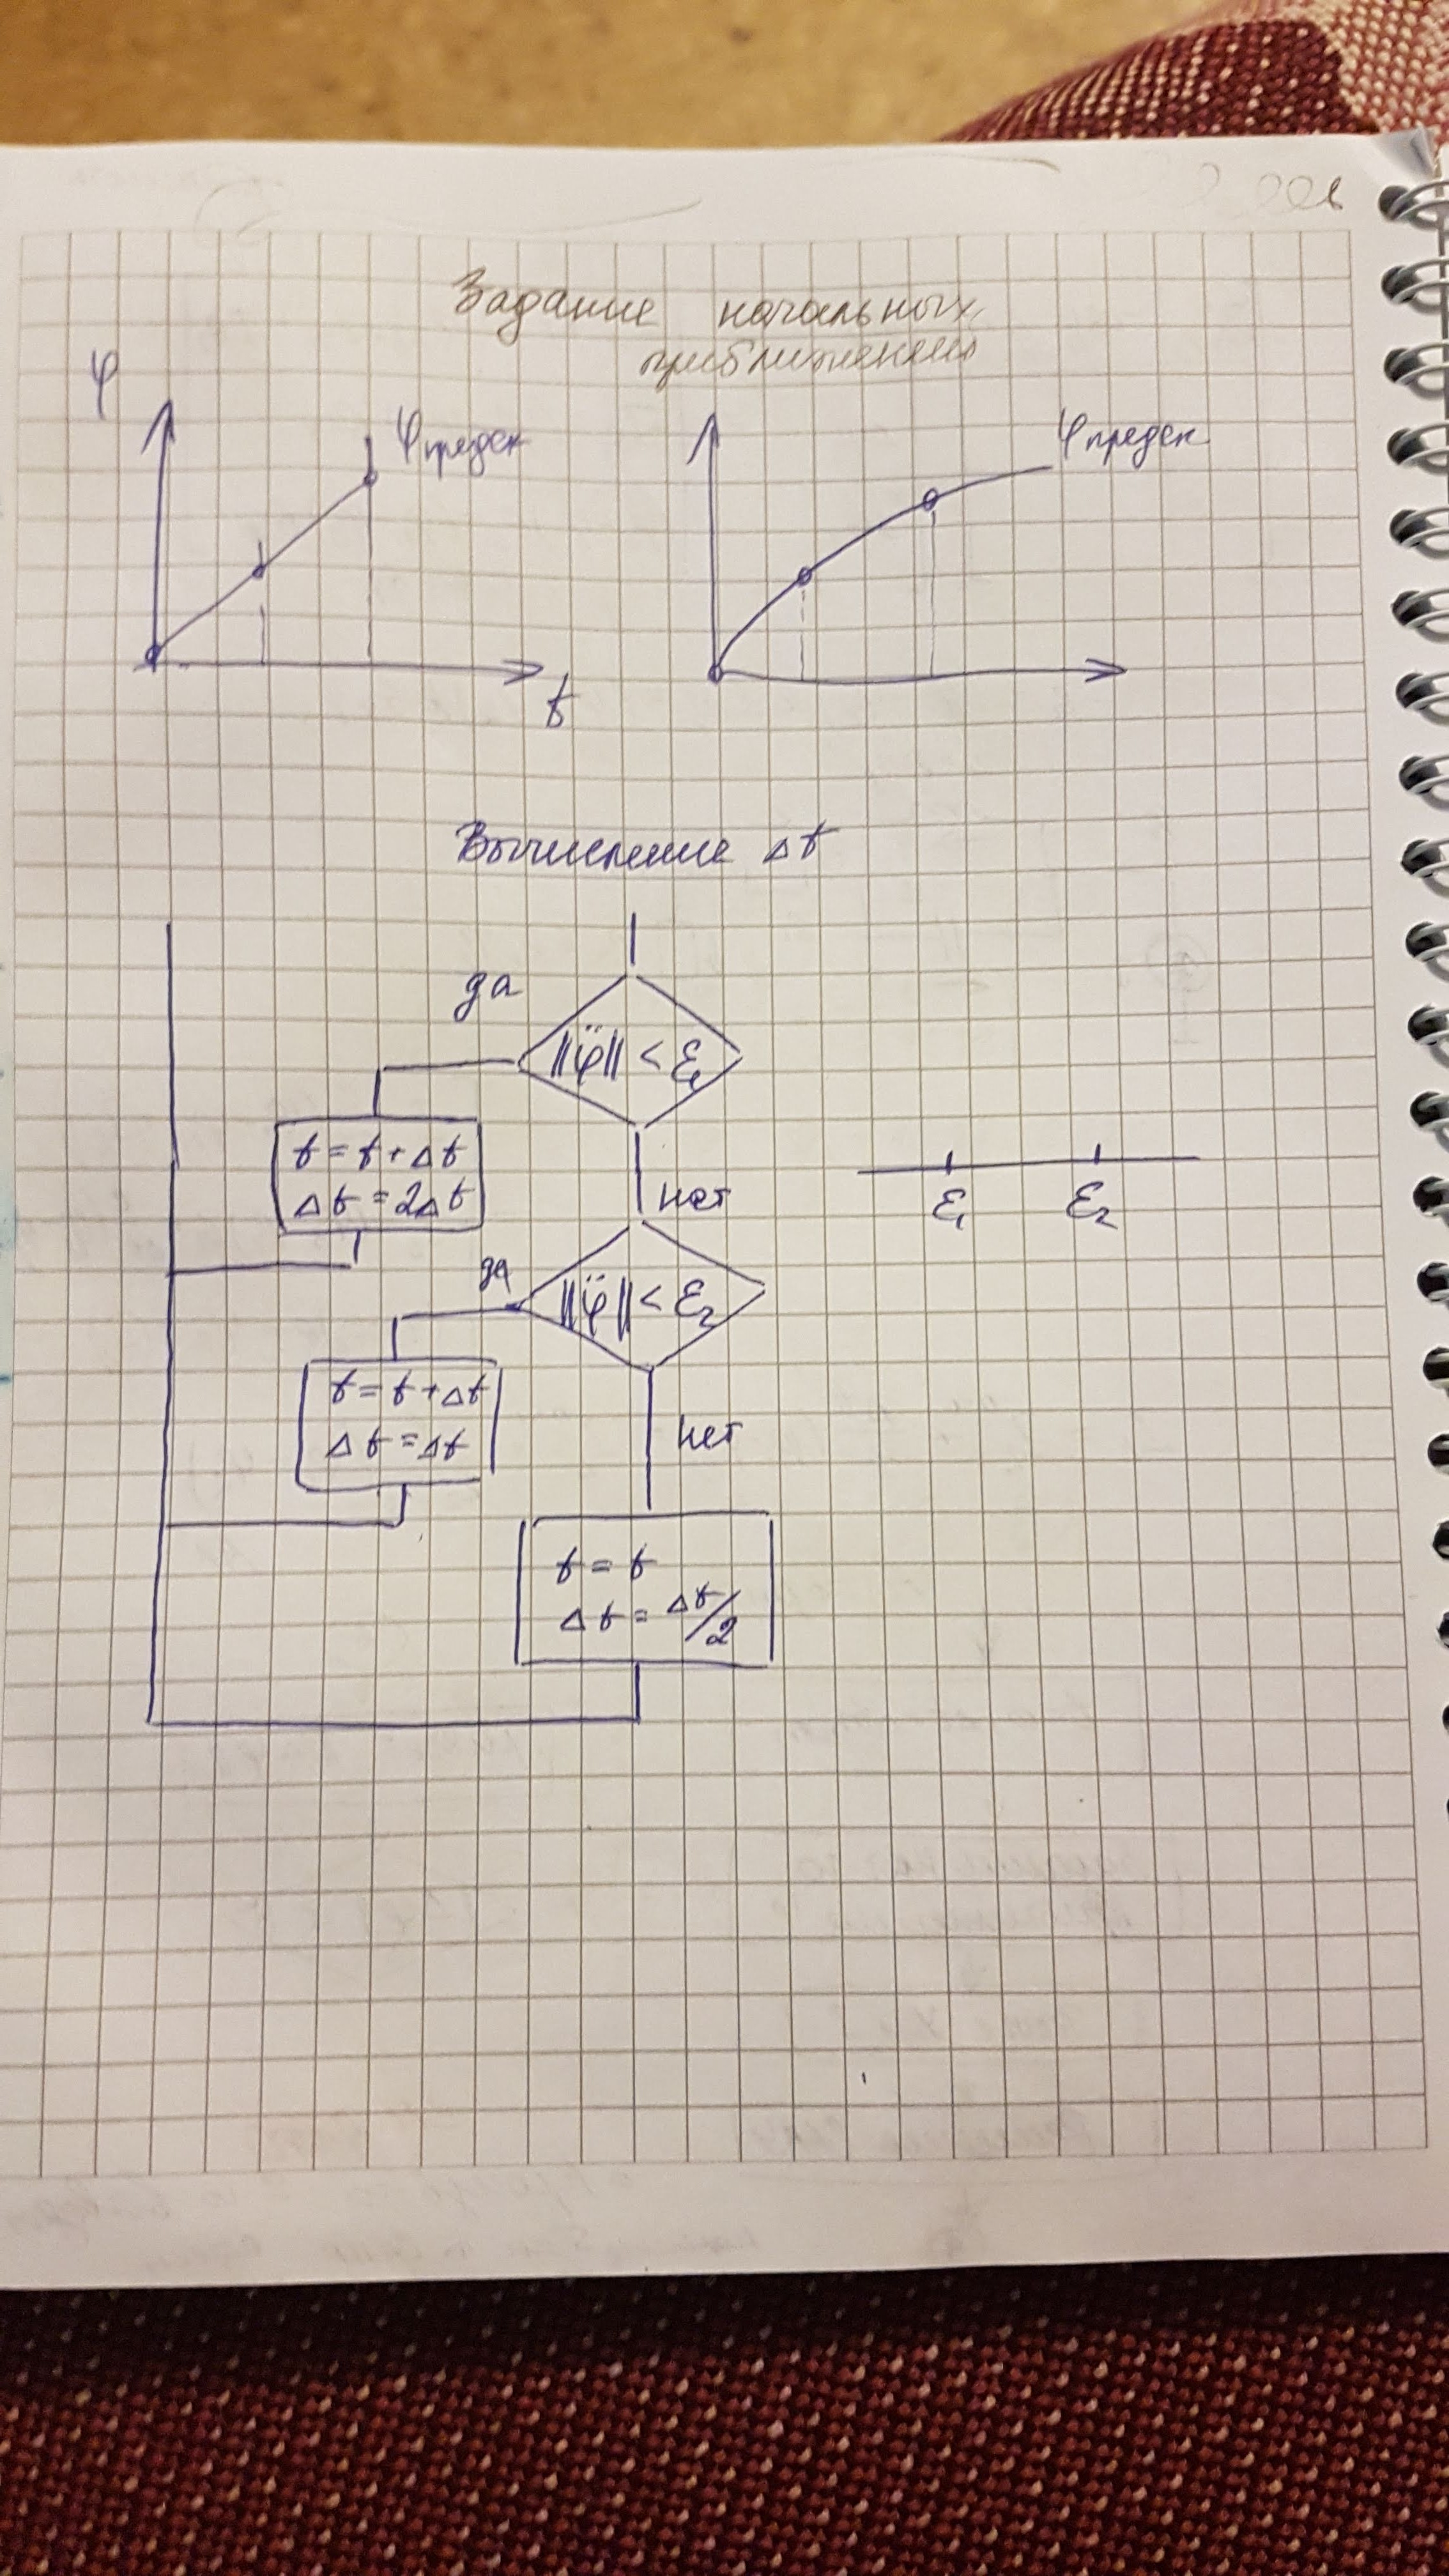 Задание начальных
приближений
φ
φпредск
φпредск
t
Вычисление Δt
да
||φ̈|| < ε₁
t = t + Δt
Δt = 2Δt
нет
ε₁ ε₂
да
||φ̈|| < ε₂
t = t + Δt
Δt = Δt
нет
t = t
Δt = Δt/2